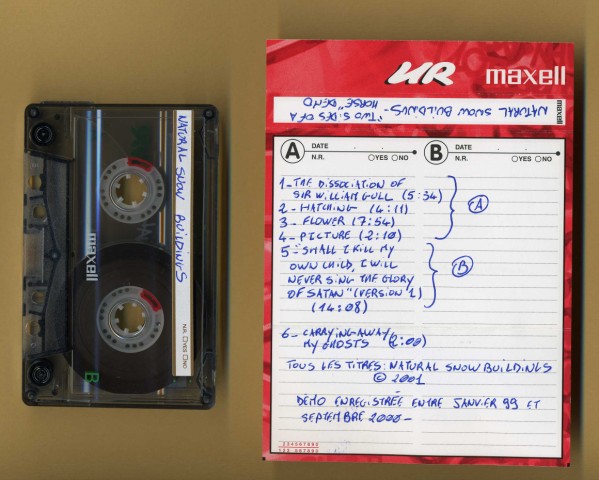 NATURAL SNOW BUILDINGS
maxell
N.R. □YES □NO
B
UR maxell
NATURAL SNOW BUILDINGS-
"TWO SIDES OF A HORSE" DEMO
maxell
A DATE . .
N.R. ○YES ○NO
B DATE . .
N.R. ○YES ○NO
1_ THE DISSOCIATION OF
SIR WILLIAM GULL (5:34)
2- HATCHING (4:11)
3_ FLOWER (7:54)
4- PICTURE (2:10)
A
5- "SHALL I KILL MY
OWN CHILD, I WILL
NEVER SING THE GLORY
OF SATAN" (VERSION 1)
(14:08)
B
6_ CARRYING-AWAY
MY GHOSTS
TOUS LES TITRES: NATURAL SNOW BUILDINGS
© 2001
DEMO ENREGISTRÉE ENTRE JANVIER 99 ET
SEPTEMBRE 2000-